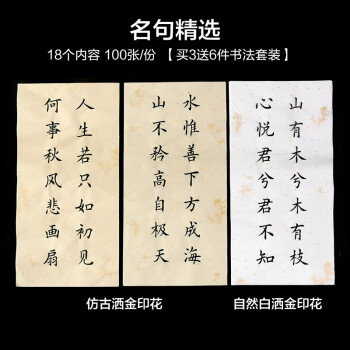 名句精选
18个内容 100张/份 【买3送6件书法套装】
人生若只如初见
何事秋风悲画扇
水惟善下方成海
山不矜高自极天
山有木兮木有枝
心悦君兮君不知
仿古洒金印花
自然白洒金印花